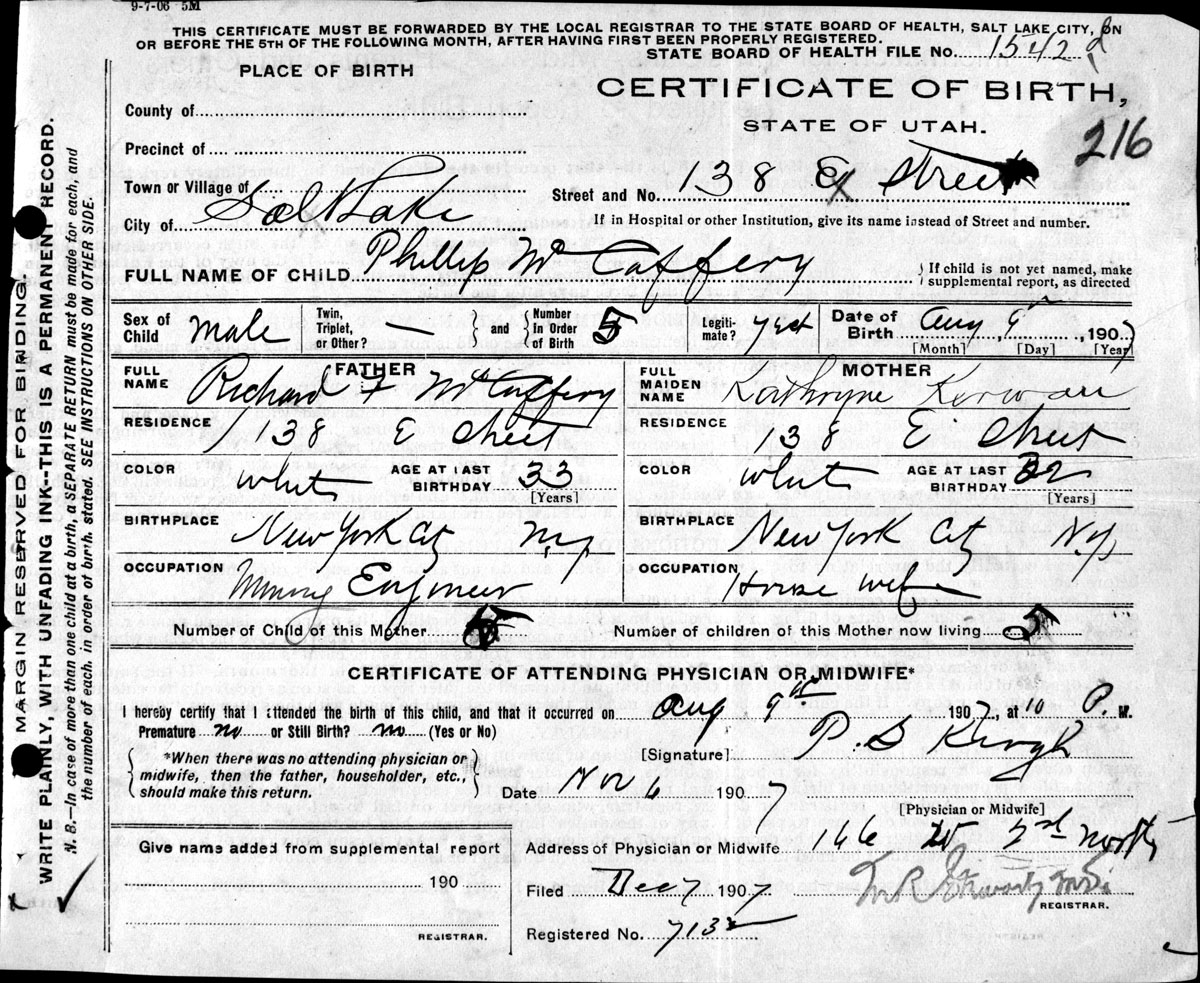 9-7-06 5M
THIS CERTIFICATE MUST BE FORWARDED BY THE LOCAL REGISTRAR TO THE STATE BOARD OF HEALTH, SALT LAKE CITY, ON
OR BEFORE THE 5TH OF THE FOLLOWING MONTH, AFTER HAVING FIRST BEEN PROPERLY REGISTERED.
STATE BOARD OF HEALTH FILE No. 1542
PLACE OF BIRTH
CERTIFICATE OF BIRTH,
STATE OF UTAH.
216
County of
Precinct of
Town or Village of
Street and No. 138 E Street
City of Salt Lake
If in Hospital or other Institution, give its name instead of Street and number.
FULL NAME OF CHILD Phillip Mc Caffery
} If child is not yet named, make supplemental report, as directed
Sex of Child Male Twin, Triplet, or Other? — } and { Number In Order of Birth 5 Legiti- mate? yes Date of Birth Aug 9, 1907
[Month] [Day] [Year]
FATHER MOTHER
FULL NAME Richard F McCaffery FULL MAIDEN NAME Kathryne Kerwan
RESIDENCE 138 E Street RESIDENCE 138 E Street
COLOR White AGE AT LAST BIRTHDAY 33 [Years] COLOR White AGE AT LAST BIRTHDAY 32 [Years]
BIRTHPLACE New York City N.Y. BIRTHPLACE New York City N.Y.
OCCUPATION Mining Engineer OCCUPATION House wife
Number of Child of this Mother 5 Number of children of this Mother now living 5
CERTIFICATE OF ATTENDING PHYSICIAN OR MIDWIFE*
I hereby certify that I attended the birth of this child, and that it occurred on Aug 9th 1907, at 10 P. M.
Premature no or Still Birth? no (Yes or No)
[Signature] P. S. Keogh
{ *When there was no attending physician or midwife, then the father, householder, etc., should make this return. }
Date Nov 6 1907
[Physician or Midwife]
Give name added from supplemental report
Address of Physician or Midwife 146 W 2nd North
190
Filed Dec 7 1907
REGISTRAR.
REGISTRAR.
Registered No. 7132
MARGIN RESERVED FOR BINDING.
WRITE PLAINLY, WITH UNFADING INK--THIS IS A PERMANENT RECORD.
N. B.—In case of more than one child at a birth, a SEPARATE RETURN must be made for each, and
the number of each, in order of birth, stated. SEE INSTRUCTIONS ON OTHER SIDE.